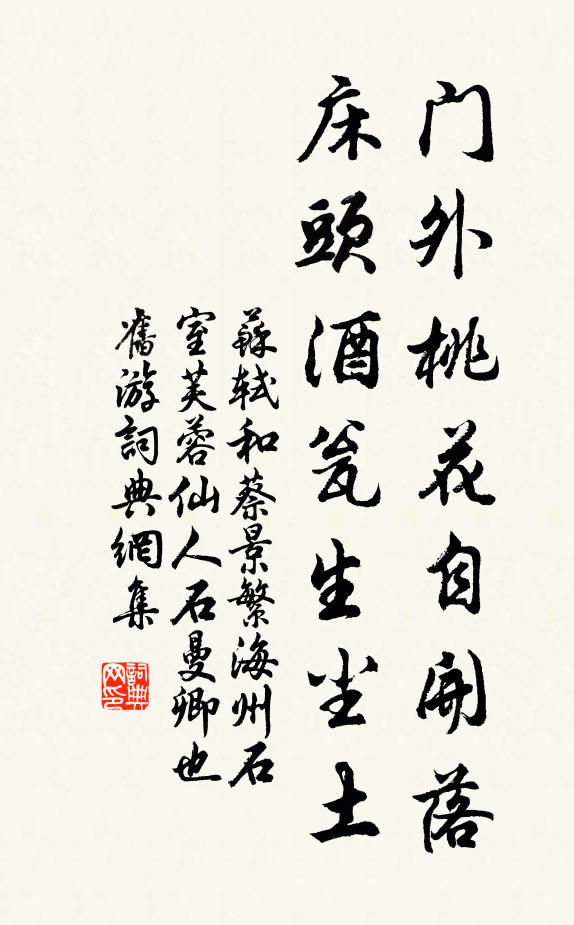 门外桃花自開落
床頭酒瓮生尘土
蘇軾和蔡景繁海州石
室芙蓉仙人石曼卿也
舊游詞典網集
詞典
网印